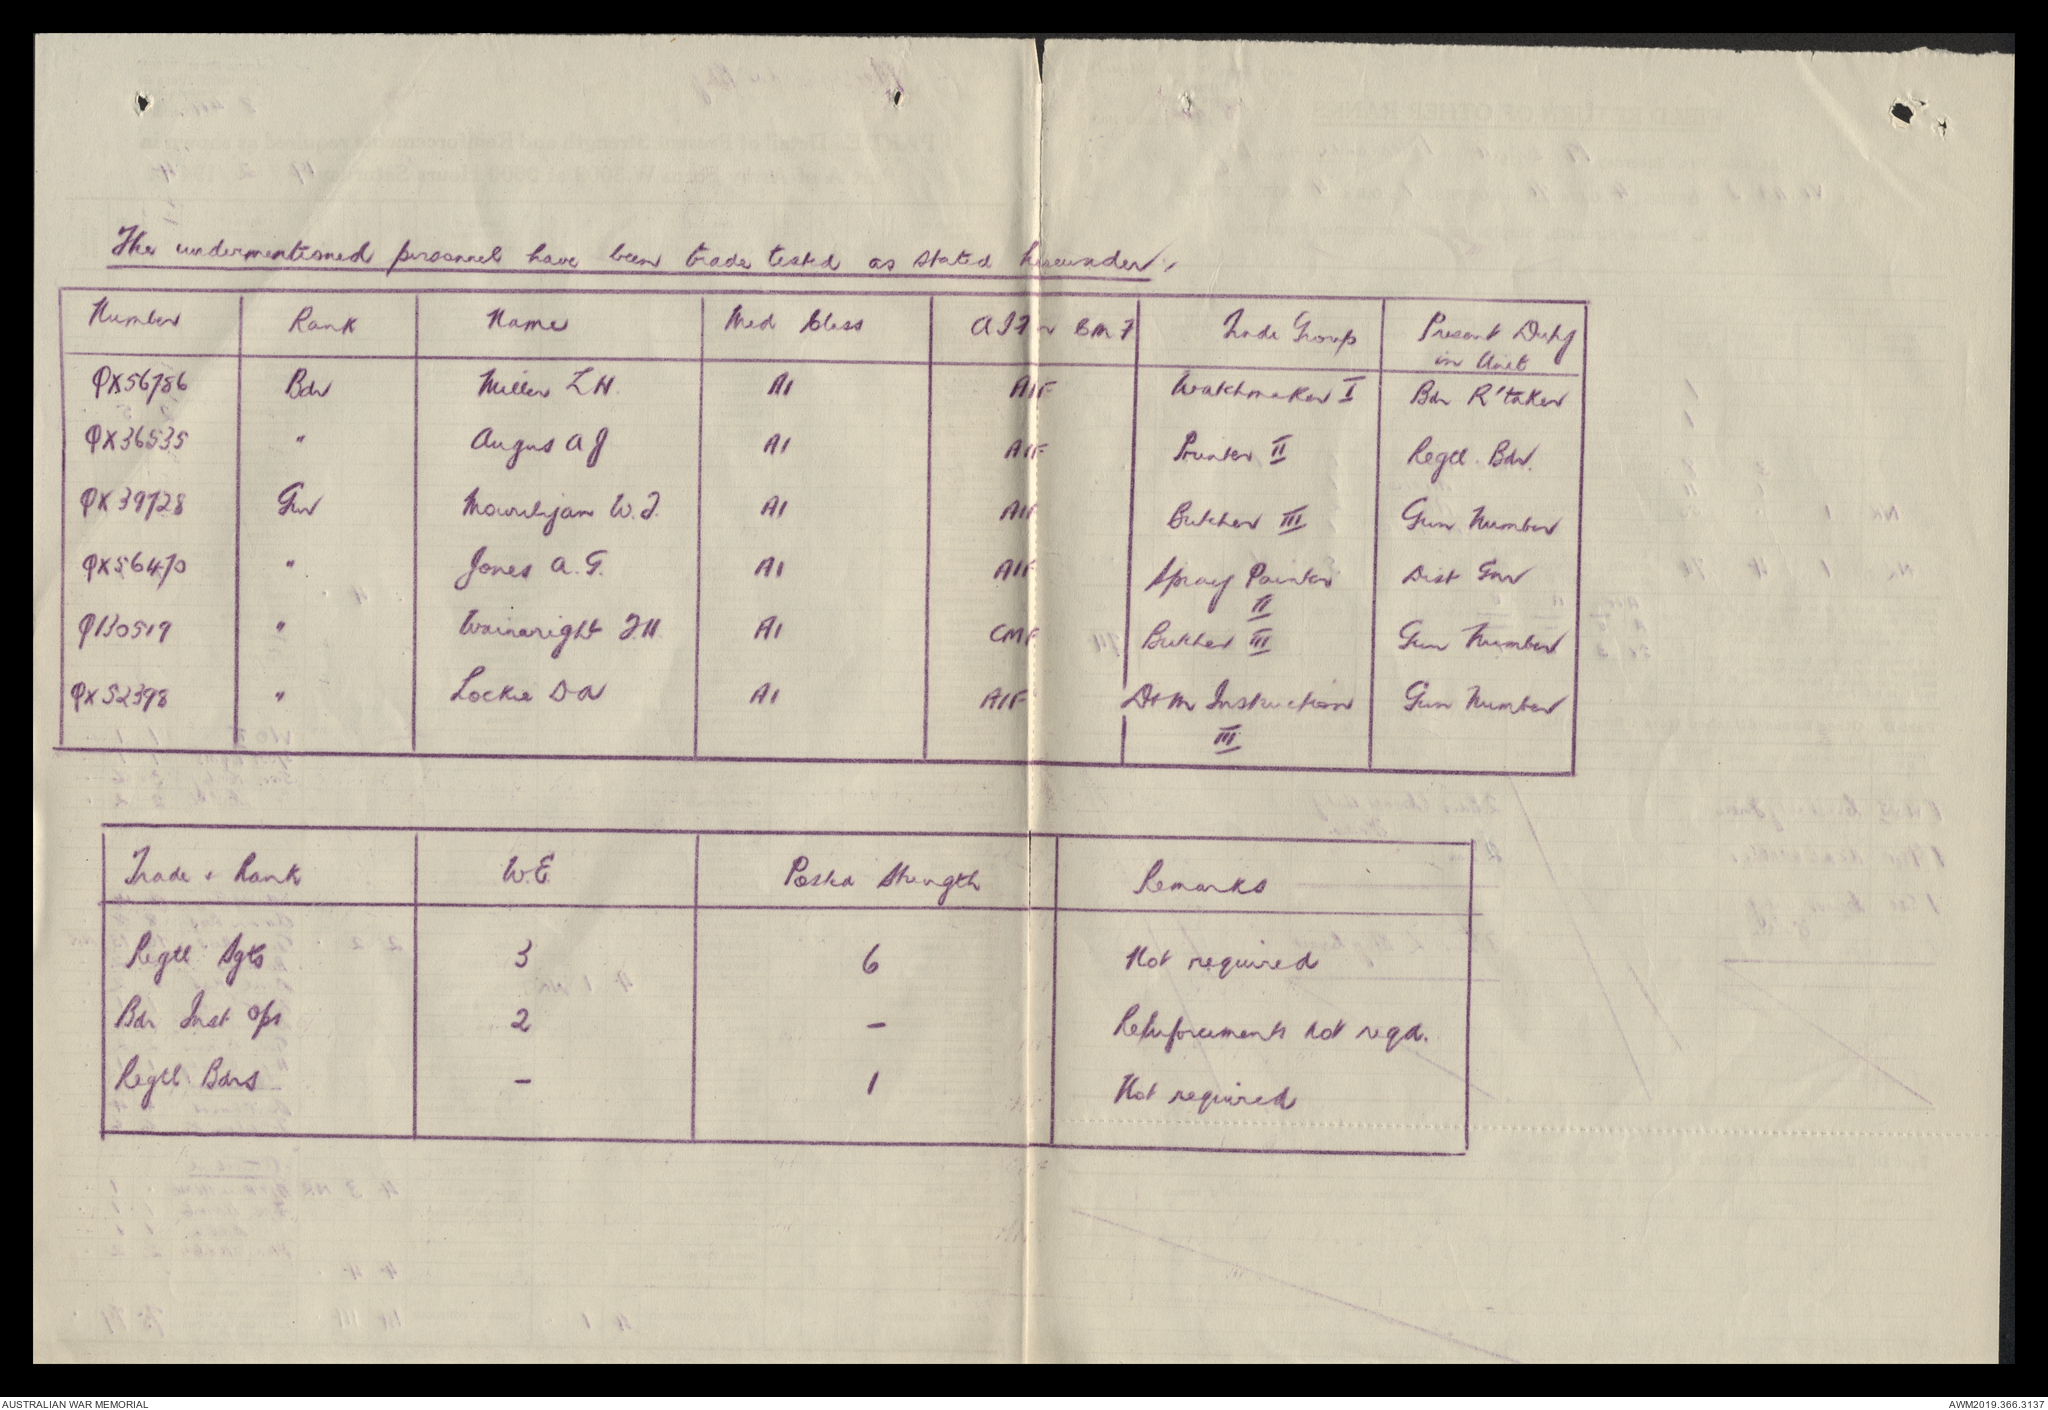 The undermentioned personnel have been trade tested as stated hereunder.
Number Rank Name Med Class AIF or CMF Trade Group Present Duty
in Unit
QX56786 Bdr Miller L H. A1 AIF Watchmaker I Bdr R'taker
QX36535 " Angus A J A1 AIF Printer II Regtl. Bdr.
QX39728 Gnr Mourilyan W. J. A1 AIF Butcher III Gun Number
QX56470 " Jones A. G. A1 AIF Spray Painter Dist Gnr
II
Q130519 " Wainwright J H. A1 CMF Butcher III Gun Number
QX52398 " Lockie D A A1 AIF D+M Instruction Gun Number
III
Trade + Rank W.E. Posted Strength Remarks
Regtl Sgts 3 6 Not required
Bdr Inst Ops 2 - Reinforcements not reqd.
Regtl. Bdrs - 1 Not required
AUSTRALIAN WAR MEMORIAL AWM2019.366.3137